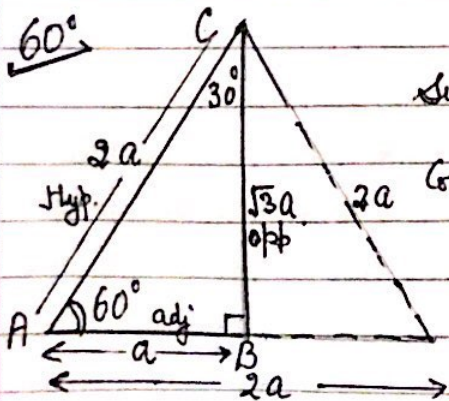 60°
C
30°
2a
Hyp.
√3a
opp
2a
60°
adj
A
B
a
2a